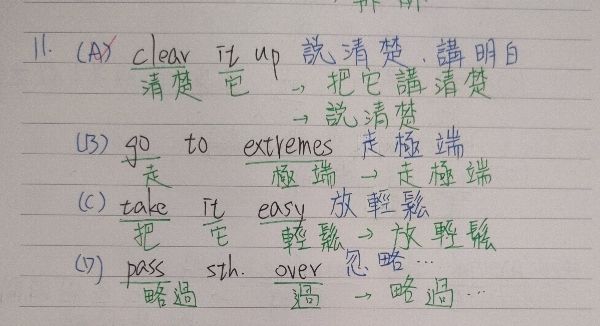 11. (A) clear it up 說清楚、講明白
清楚 它 → 把它講清楚
→ 說清楚
(B) go to extremes 走極端
走 極端 → 走極端
(C) take it easy 放輕鬆
把 它 輕鬆 → 放輕鬆
(D) pass sth. over 忽略…
略過 過 → 略過…